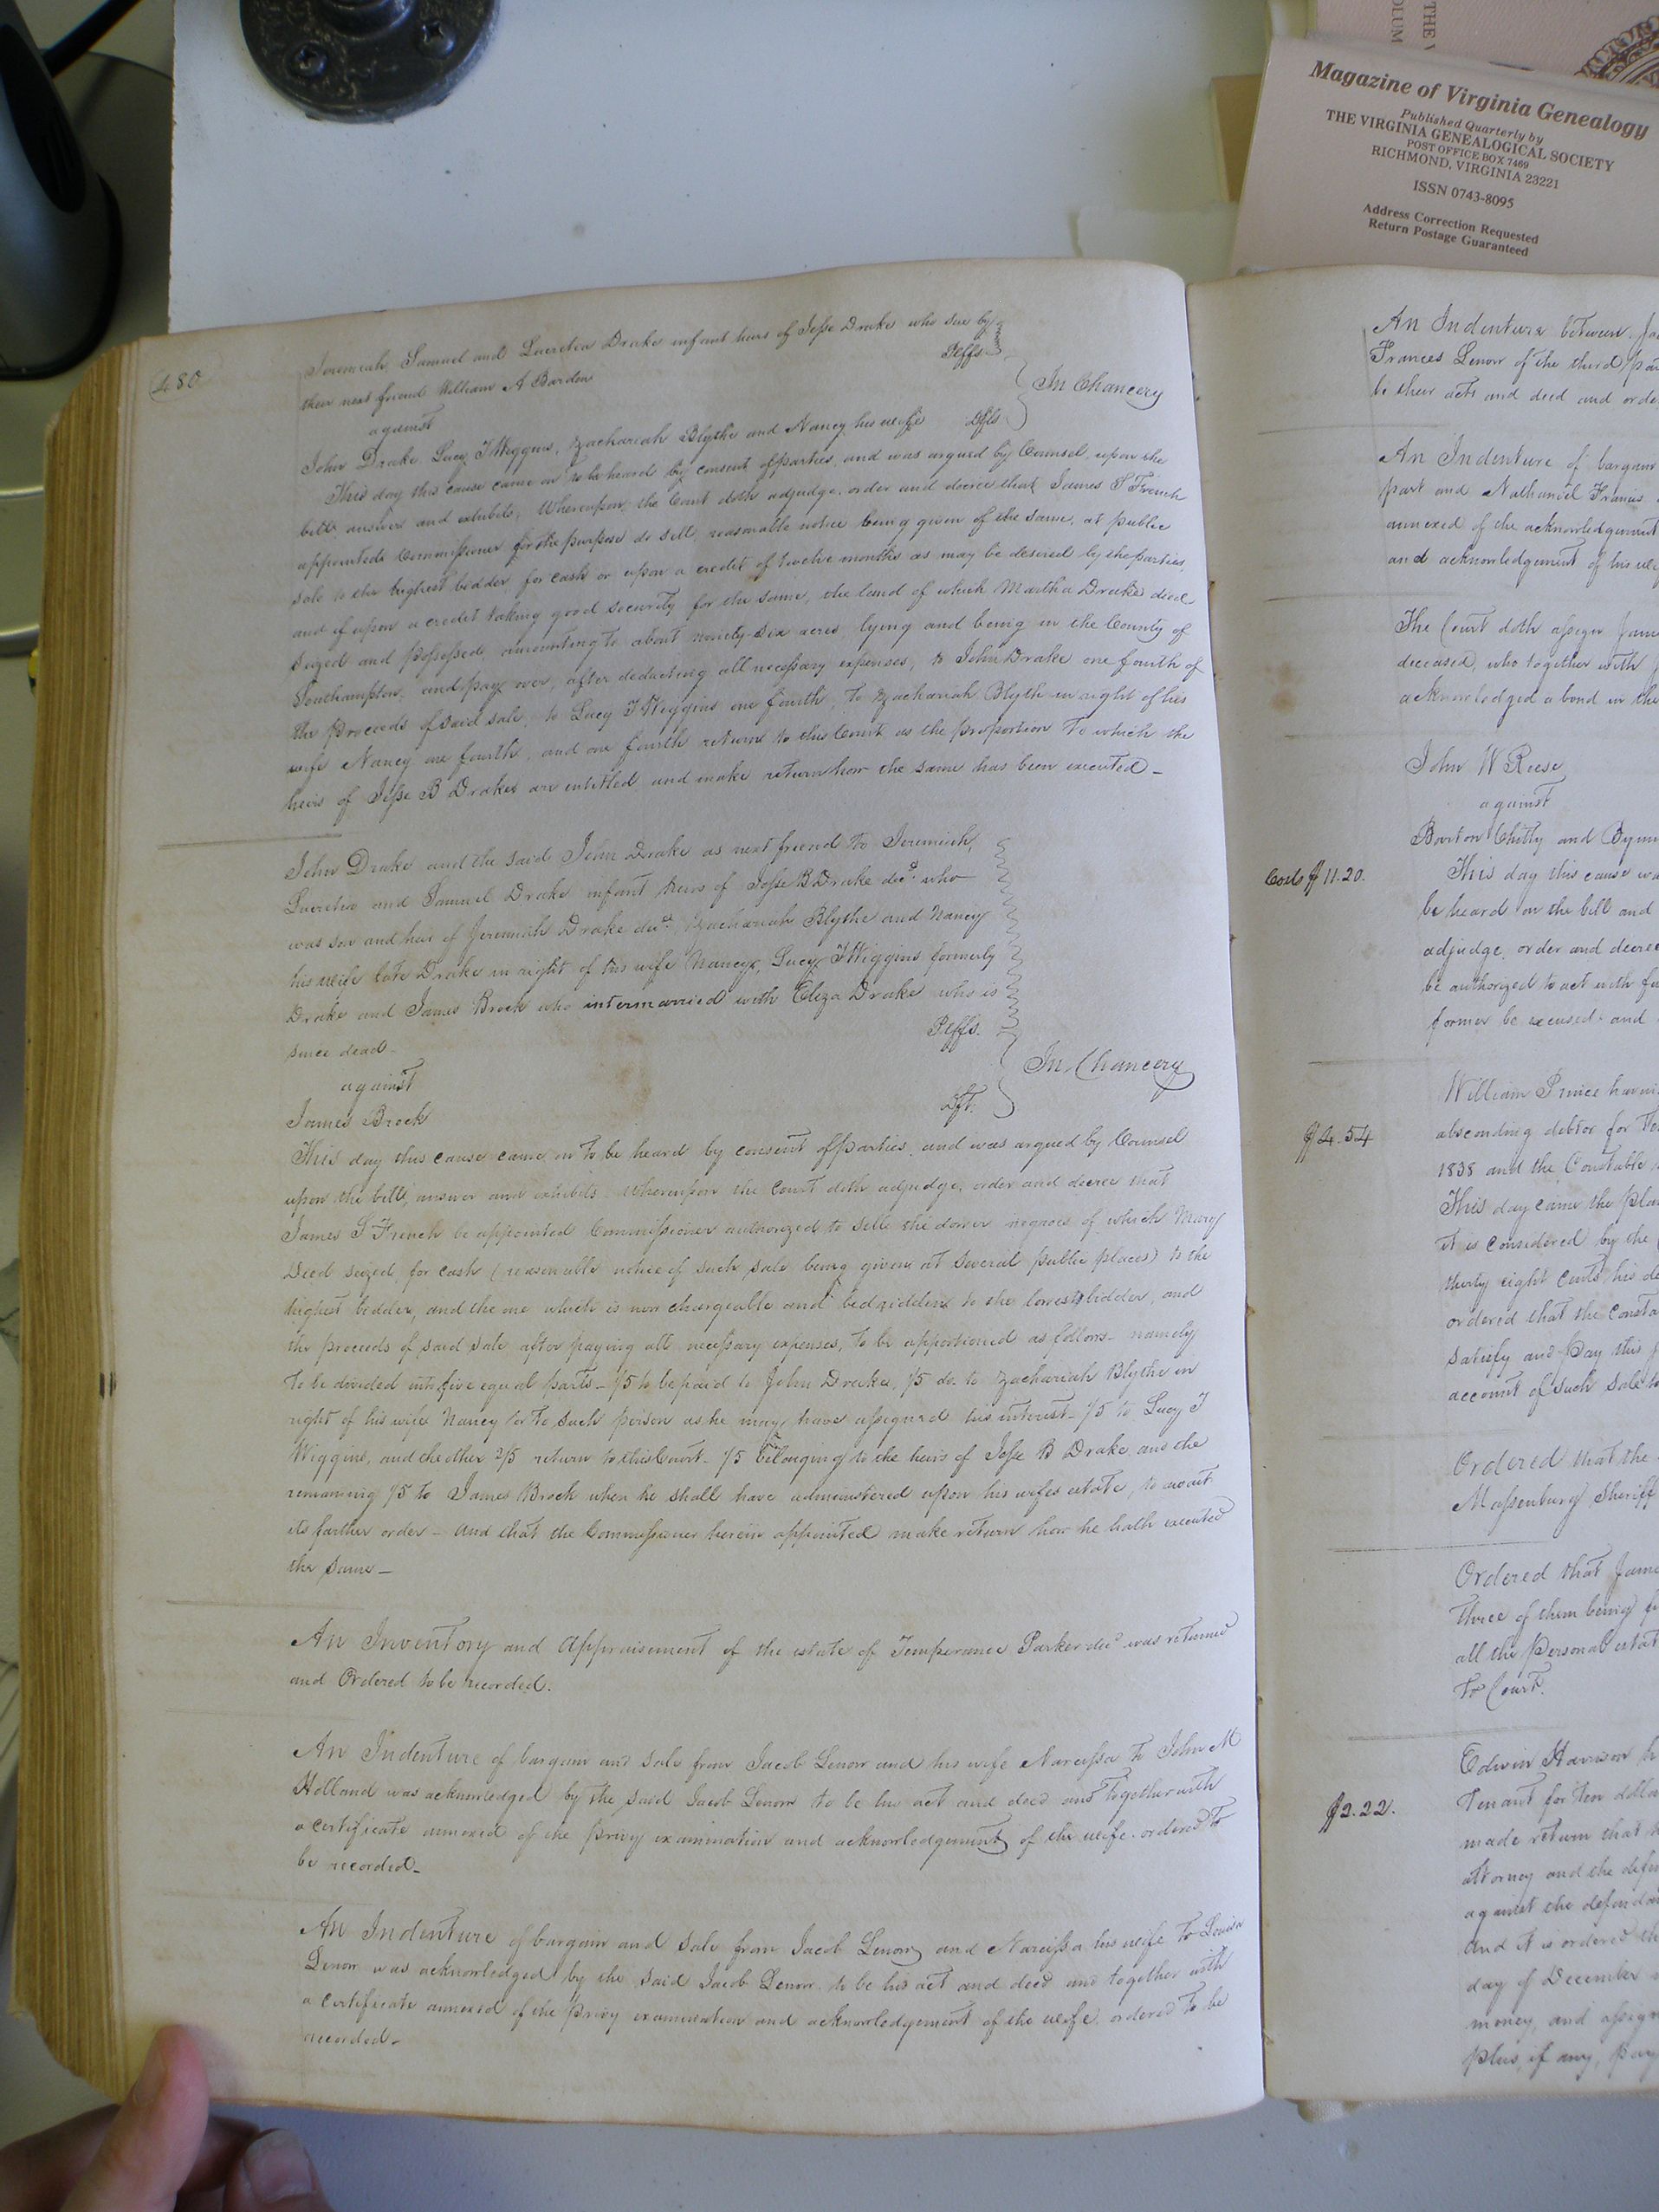 THE V
OLUM
Magazine of Virginia Genealogy
Published Quarterly by
THE VIRGINIA GENEALOGICAL SOCIETY
POST OFFICE BOX 7469
RICHMOND, VIRGINIA 23221
ISSN 0743-8095
Address Correction Requested
Return Postage Guaranteed
480
Jeremiah, Samuel and Lucretia Drake infant heirs of Jesse Drake who sue by
their next friend William A Barden Plffs
against In Chancery
John Drake, Lucy T Wiggins, Zachariah Blythe and Nancy his wife Dfts
This day this cause came on to be heard by consent of parties, and was argued by Counsel upon the
bill, answer and exhibits, Whereupon, the Court doth adjudge, order and decree that James S French
appointed Commissioner for the purpose do sell, reasonable notice being given of the same, at public
sale to the highest bidder, for cash or upon a credit of twelve months as may be desired by the parties,
and if upon a credit taking good security for the same, the land of which Martha Drake died
seized and possessed, amounting to about ninety-six acres, lying and being in the County of
Southampton, and pay over, after deducting all necessary expenses, to John Drake one fourth of
the proceeds of said sale, to Lucy T Wiggins one fourth, to Zachariah Blyth in right of his
wife Nancy one fourth, and one fourth return to this Court as the proportion to which the
heirs of Jesse B Drake are entitled and make return how the same has been executed -
John Drake and the said John Drake as next friend to Jeremiah,
Lucretia and Samuel Drake infant heirs of Jesse B Drake decd. who
was son and heir of Jeremiah Drake decd. Zachariah Blythe and Nancy
his wife late Drake in right of his wife Nancy, Lucy T Wiggins formerly
Drake and James Brock who intermarried with Eliza Drake who is
since dead - Plffs.
against In Chancery
James Brock Dft.
This day this cause came on to be heard by consent of parties, and was argued by Counsel
upon the bill, answer and exhibits. Whereupon the Court doth adjudge, order and decree that
James S French be appointed Commissioner authorized to sell the dower negroes of which Mary
died seized, for cash (reasonable notice of such sale being given at several public places) to the
highest bidder, and the one which is now chargeable and bedridden to the lowest bidder, and
the proceeds of said sale after paying all necessary expenses, to be apportioned as follows - namely
to be divided into five equal parts - 1/5 to be paid to John Drake, 1/5 do. to Zachariah Blythe in
right of his wife Nancy or to such person as he may have assigned his interest - 1/5 to Lucy T
Wiggins, and the other 2/5 return to this Court - 1/5 belonging to the heirs of Jesse B Drake, and the
remaining 1/5 to James Brock when he shall have administered upon his wifes estate, to await
its further order - and that the Commissioner herein appointed make return how he hath executed
the same -
An Inventory and Appraisement of the estate of Temperance Parker decd was returned
and Ordered to be recorded.
An Indenture of bargain and sale from Jacob Lenow and his wife Narcissa to John M
Holland was acknowledged by the said Jacob Lenow to be his act and deed and together with
a certificate annexed of the privy examination and acknowledgement of the wife ordered to
be recorded -
An Indenture of bargain and sale from Jacob Lenow and Narcissa his wife to Louisa
Lenow was acknowledged by the said Jacob Lenow to be his act and deed and together with
a certificate annexed of the privy examination and acknowledgement of the wife ordered to be
recorded -
An Indenture between
Frances Lenow of the third
be their acts and deed and
An Indenture of bargain
part and Nathaniel Francis
annexed of the acknowledgment
and acknowledgement of his
The Court doth assign
deceased, who together with
acknowledged a bond in the
John W Reese
against
Barton Chitty and
Costs $11.20. This day this cause
be heard on the bill and
adjudge, order and decree
be authorized to act with
former be excused and
William Prince
$4.54 absconding debtor for
1838 and the Constable
This day came the
it is considered by the
thirty eight Cents his
ordered that the
satisfy and pay this
account of such sale to
Ordered that the
Massenburg Sheriff
Ordered that
three of them being
all the personal
to Court.
Edwin Harrison
Tenant for ten
$2.22. made return that
attorney and the
against the
and it is ordered
day of December
money, and
plus, if any, pay